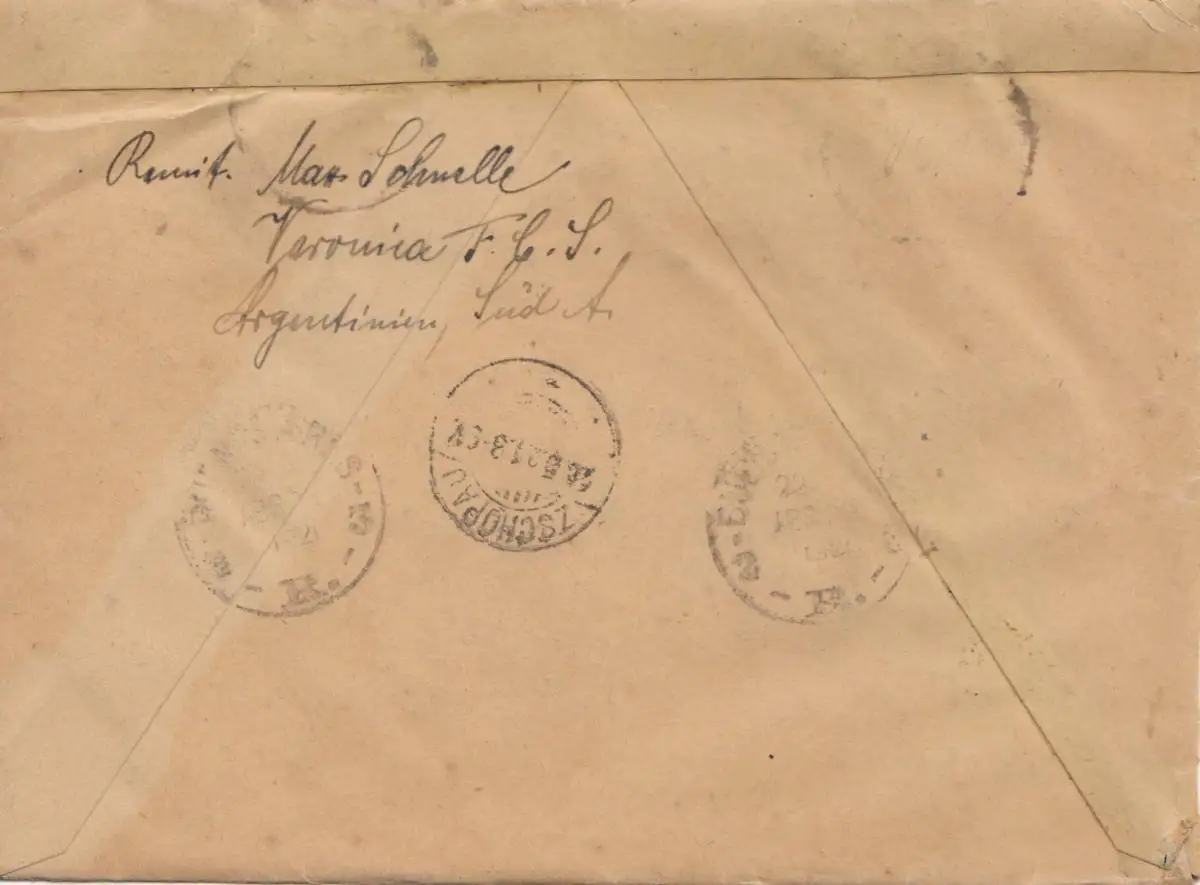 Remit. Max Schnelle
Veronica F. C. S.
Argentinien, Süd A.
ZSCHOPAU